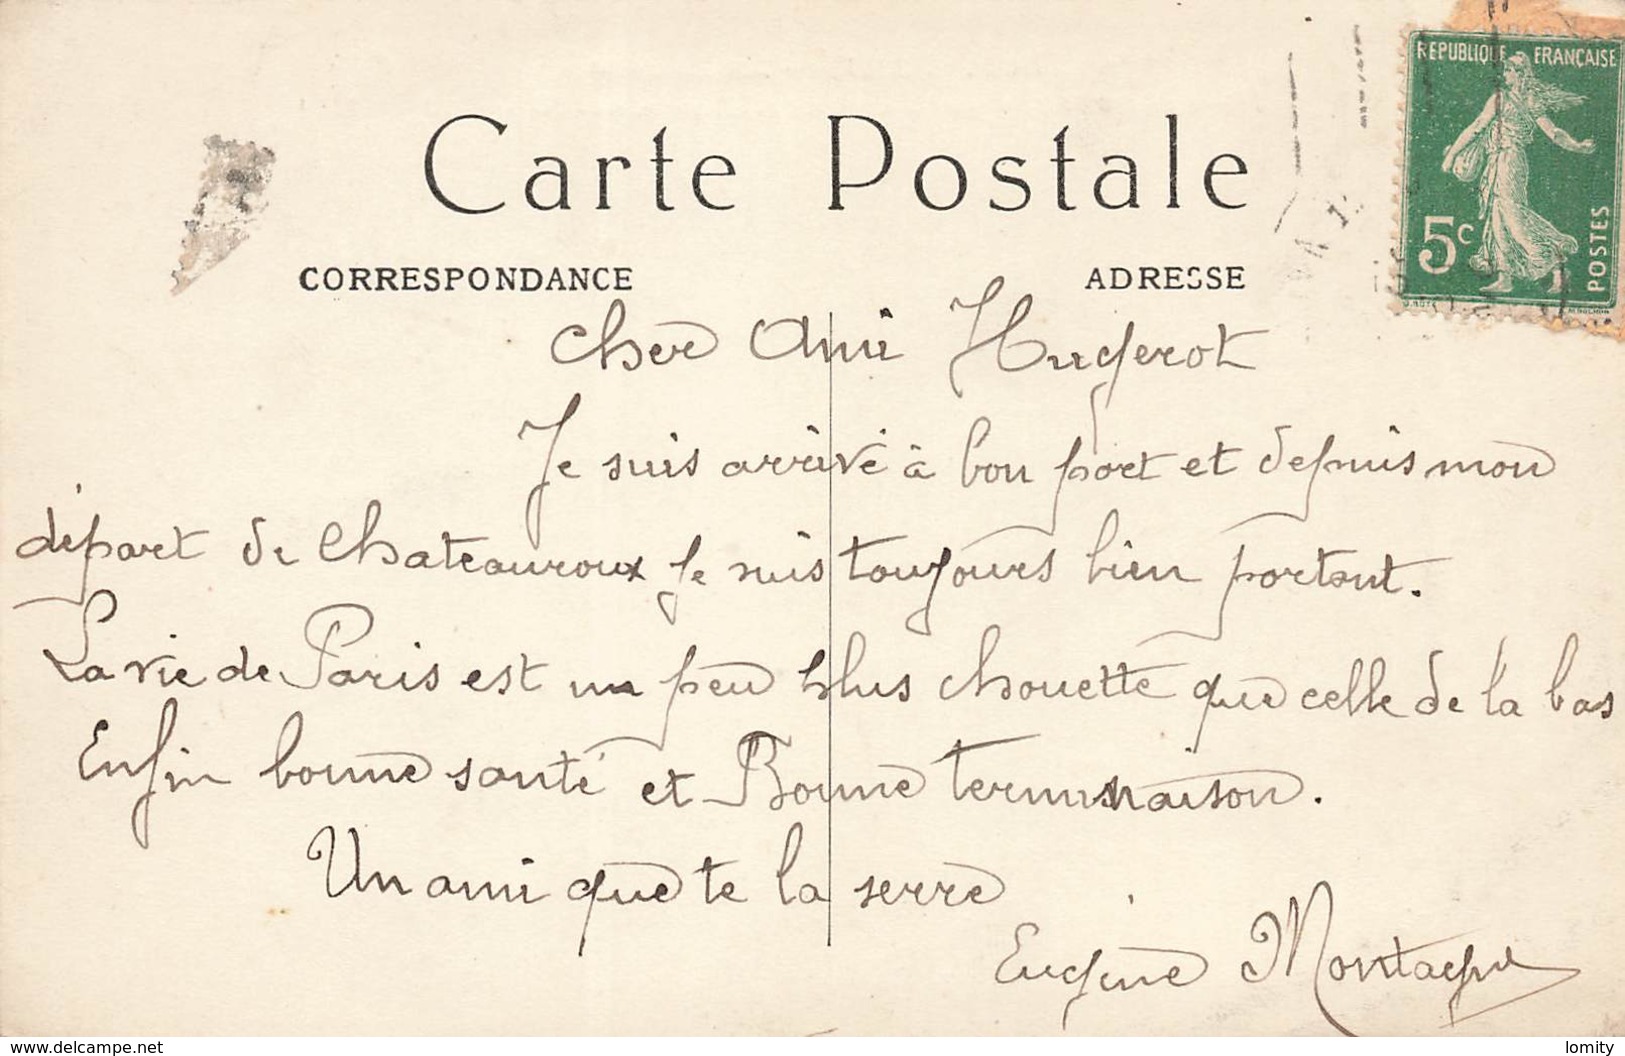 RÉPUBLIQUE FRANÇAISE
5c
POSTES
Carte Postale
CORRESPONDANCE
ADRESSE
Cher Ami Hugerot
Je suis arrivé à bon port et depuis mon
départ de Chateauroux je suis toujours bien portant.
La vie de Paris est un peu plus chouette que celle de là bas
Enfin bonne santé et Bonne terminaison.
Un ami que te la serre
Eugène Montagne
www.delcampe.net
lomity